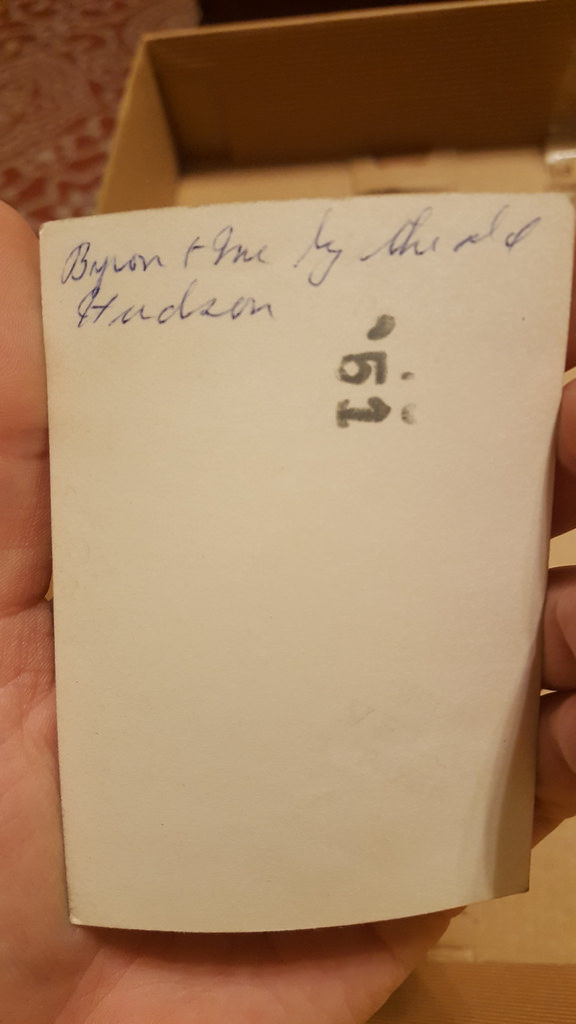 Byron + me by the old
Hudson
51